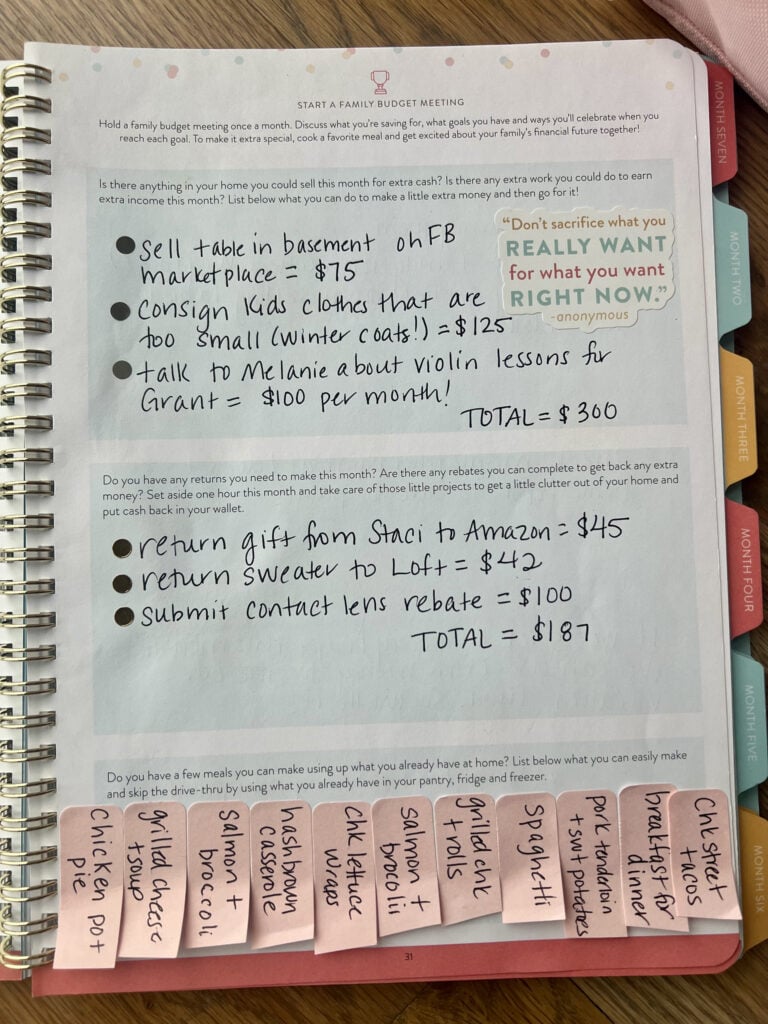 START A FAMILY BUDGET MEETING
Hold a family budget meeting once a month. Discuss what you're saving for, what goals you have and ways you'll celebrate when you
reach each goal. To make it extra special, cook a favorite meal and get excited about your family's financial future together!
Is there anything in your home you could sell this month for extra cash? Is there any extra work you could do to earn
extra income this month? List below what you can do to make a little extra money and then go for it!
sell table in basement on FB
marketplace = $75
consign kids clothes that are
too small (winter coats!) = $125
talk to Melanie about violin lessons for
Grant = $100 per month!
TOTAL = $300
"Don't sacrifice what you
REALLY WANT
for what you want
RIGHT NOW."
-anonymous
Do you have any returns you need to make this month? Are there any rebates you can complete to get back any extra
money? Set aside one hour this month and take care of those little projects to get a little clutter out of your home and
put cash back in your wallet.
return gift from Staci to Amazon = $45
return sweater to Loft = $42
submit contact lens rebate = $100
TOTAL = $187
Do you have a few meals you can make using up what you already have at home? List below what you can easily make
and skip the drive-thru by using what you already have in your pantry, fridge and freezer.
Chicken pot
pie
grilled cheese
+ soup
salmon +
broccoli
hashbrown
casserole
chk lettuce
wraps
salmon +
brocolii
grilled chk
+ rolls
spaghetti
pork tenderloin
+ swt potatoes
breakfast for
dinner
Chk street
tacos
31
MONTH SEVEN
MONTH TWO
MONTH THREE
MONTH FOUR
MONTH FIVE
MONTH SIX